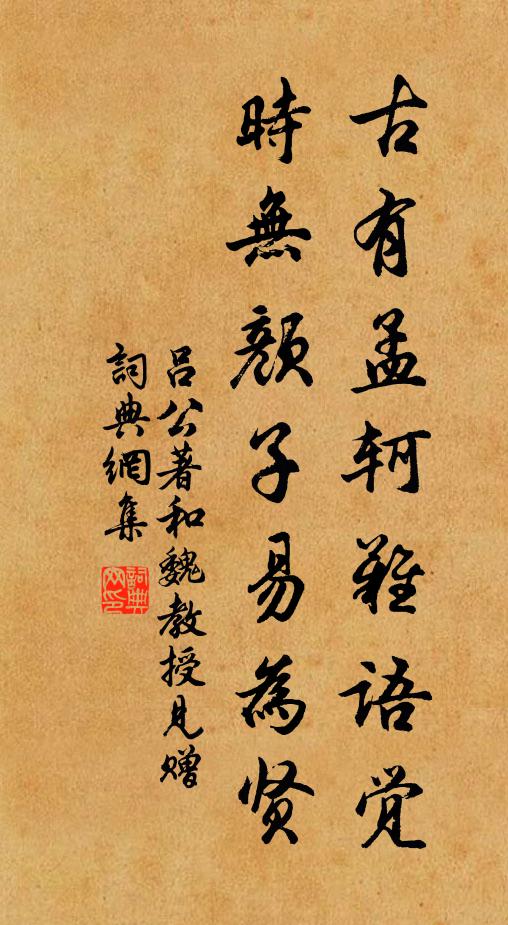 古有孟轲難语觉
時無颜子易為贤
吕公著和魏教授見赠
詞典網集
詞典网印